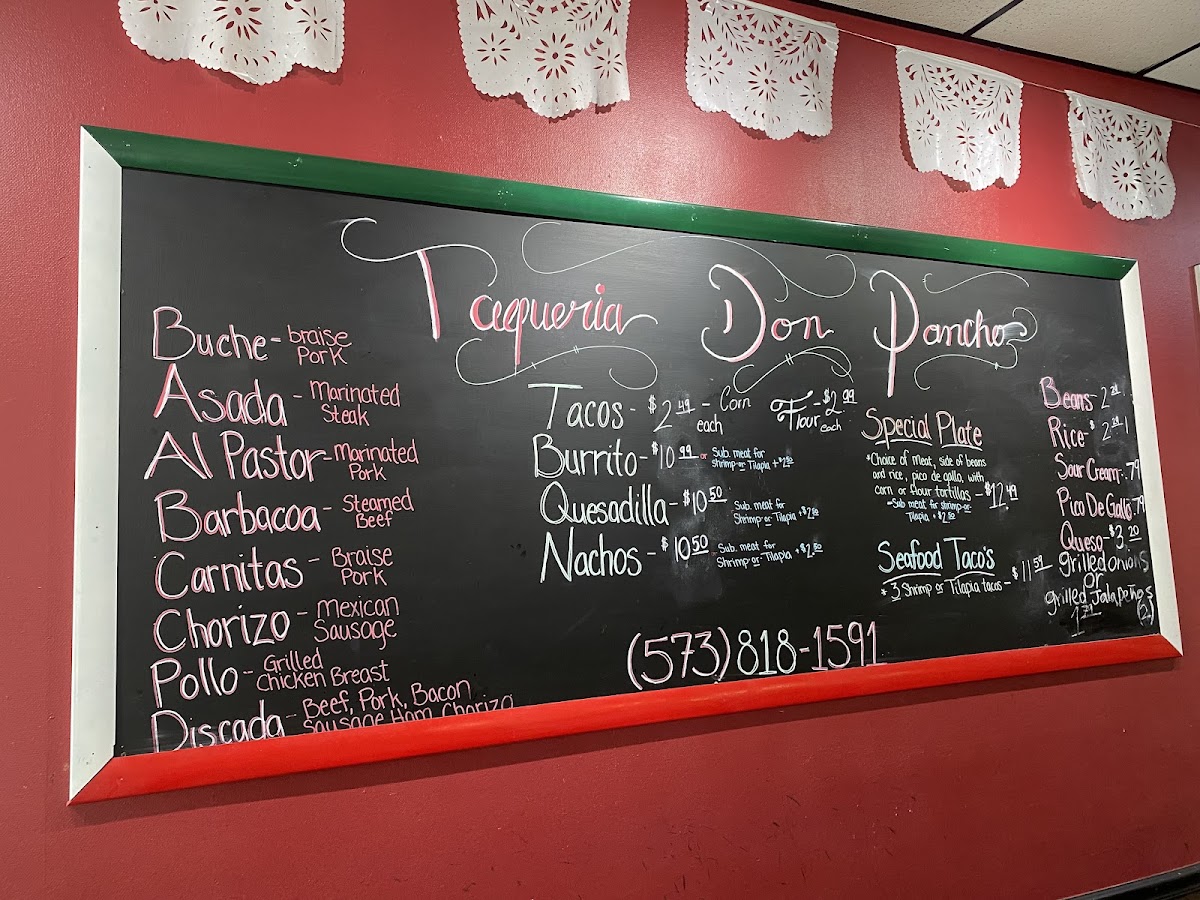 Taqueria Don Pancho
Buche - braise
Pork
Asada - Marinated
Steak
Al Pastor - Marinated
Pork
Barbacoa - Steamed
Beef
Carnitas - Braise
Pork
Chorizo - Mexican
Sausage
Pollo - Grilled
Chicken Breast
Discada - Beef, Pork, Bacon
Sausage Ham, Chorizo
Tacos - $2.49 - Corn
each
Flour - $2.99
each
Burrito - $10.99 or Sub. meat for
Shrimp or Tilapia +
Quesadilla - $10.50 Sub. meat for
Shrimp or Tilapia +
Nachos - $10.50 Sub. meat for
Shrimp or Tilapia +
Special Plate
*Choice of meat, side of beans
and rice, pico de gallo, with
corn or flour tortillas - $12.49
*Sub meat for shrimp or
Tilapia +
Seafood Taco's
* 3 Shrimp or Tilapia tacos - $11.59
Beans
Rice -
Sour Cream - .79
Pico De Gallo .79
Queso - $3.20
grilled onions
or
grilled Jalapeños
(573) 818-1591